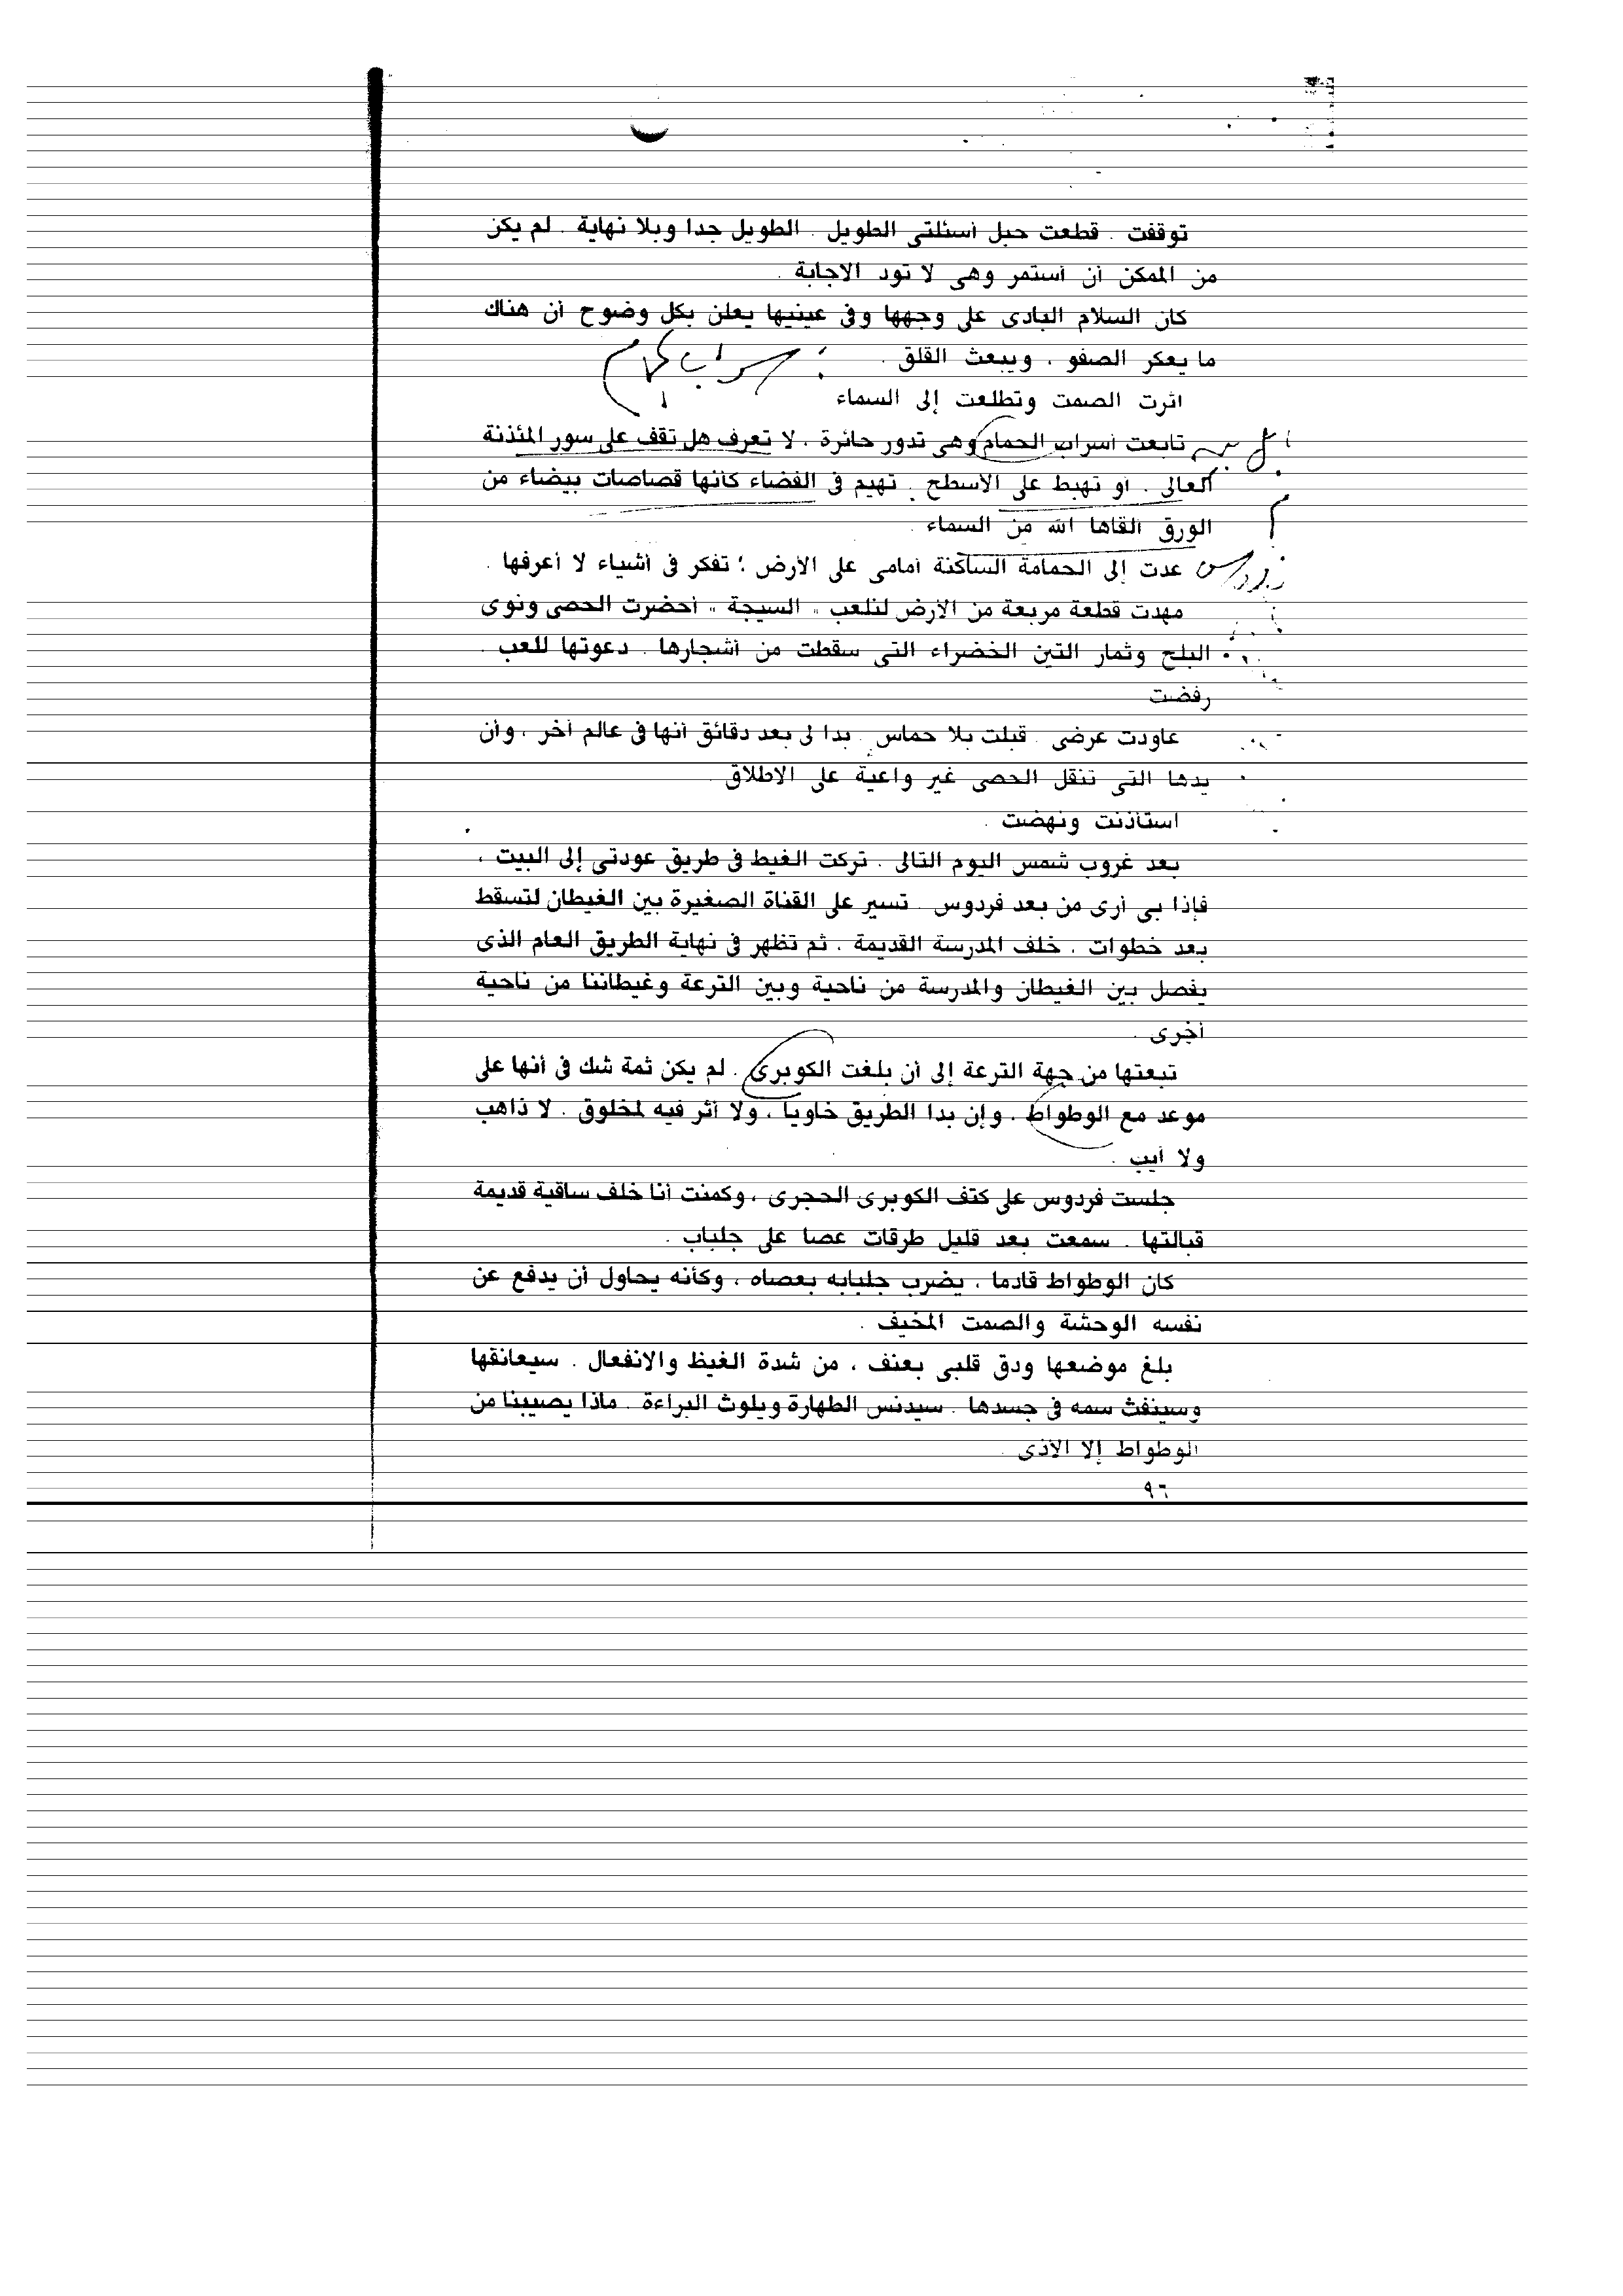 توقفت . قطعت حبل أسئلتى الطويل . الطويل جدا وبلا نهاية . لم يكن
من الممكن أن أستمر وهى لا تود الاجابة .
كان السلام البادى على وجهها وفى عينيها يعلن بكل وضوح أن هناك
ما يعكر الصفو ، ويبعث القلق .
اثرت الصمت وتطلعت إلى السماء
تابعت أسراب الحمام وهى تدور حائرة ، لا تعرف هل تقف على سور المئذنة
العالى . أو تهبط على الأسطح . تهيم فى الفضاء كأنها قصاصات بيضاء من
الورق القاها الله من السماء .
عدت إلى الحمامة الساكنة أمامى على الأرض ؛ تفكر فى أشياء لا أعرفها .
مهدت قطعة مربعة من الأرض لنلعب « السيجة » أحضرت الحصى ونوى
البلح وثمار التين الخضراء التى سقطت من أشجارها . دعوتها للعب .
رفضت
عاودت عرضى . قبلت بلا حماس . بدا لى بعد دقائق أنها فى عالم أخر ، وأن
يدها التى تنقل الحصى غير واعية على الاطلاق .
استأذنت ونهضت .
بعد غروب شمس اليوم التالى . تركت الغيط فى طريق عودتى إلى البيت ،
فإذا بى أرى من بعد فردوس . تسير على القناة الصغيرة بين الغيطان لتسقط
بعد خطوات . خلف المدرسة القديمة . ثم تظهر فى نهاية الطريق العام الذى
يفصل بين الغيطان والمدرسة من ناحية وبين الترعة وغيطاننا من ناحية
أخرى .
تبعتها من جهة الترعة إلى أن بلغت الكوبرى . لم يكن ثمة شك فى أنها على
موعد مع الوطواط . وإن بدا الطريق خاويا ، ولا أثر فيه لمخلوق . لا ذاهب
ولا أيب .
جلست فردوس على كتف الكوبرى الحجرى ، وكمنت أنا خلف ساقية قديمة
قبالتها . سمعت بعد قليل طرقات عصا على جلباب .
كان الوطواط قادما ، يضرب جلبابه بعصاه ، وكأنه يحاول أن يدفع عن
نفسه الوحشة والصمت المخيف .
بلغ موضعها ودق قلبى بعنف ، من شدة الغيظ والانفعال . سيعانقها
وسينفث سمه فى جسدها . سيدنس الطهارة ويلوث البراءة . ماذا يصيبنا من
الوطواط إلا الأذى .
٩٦